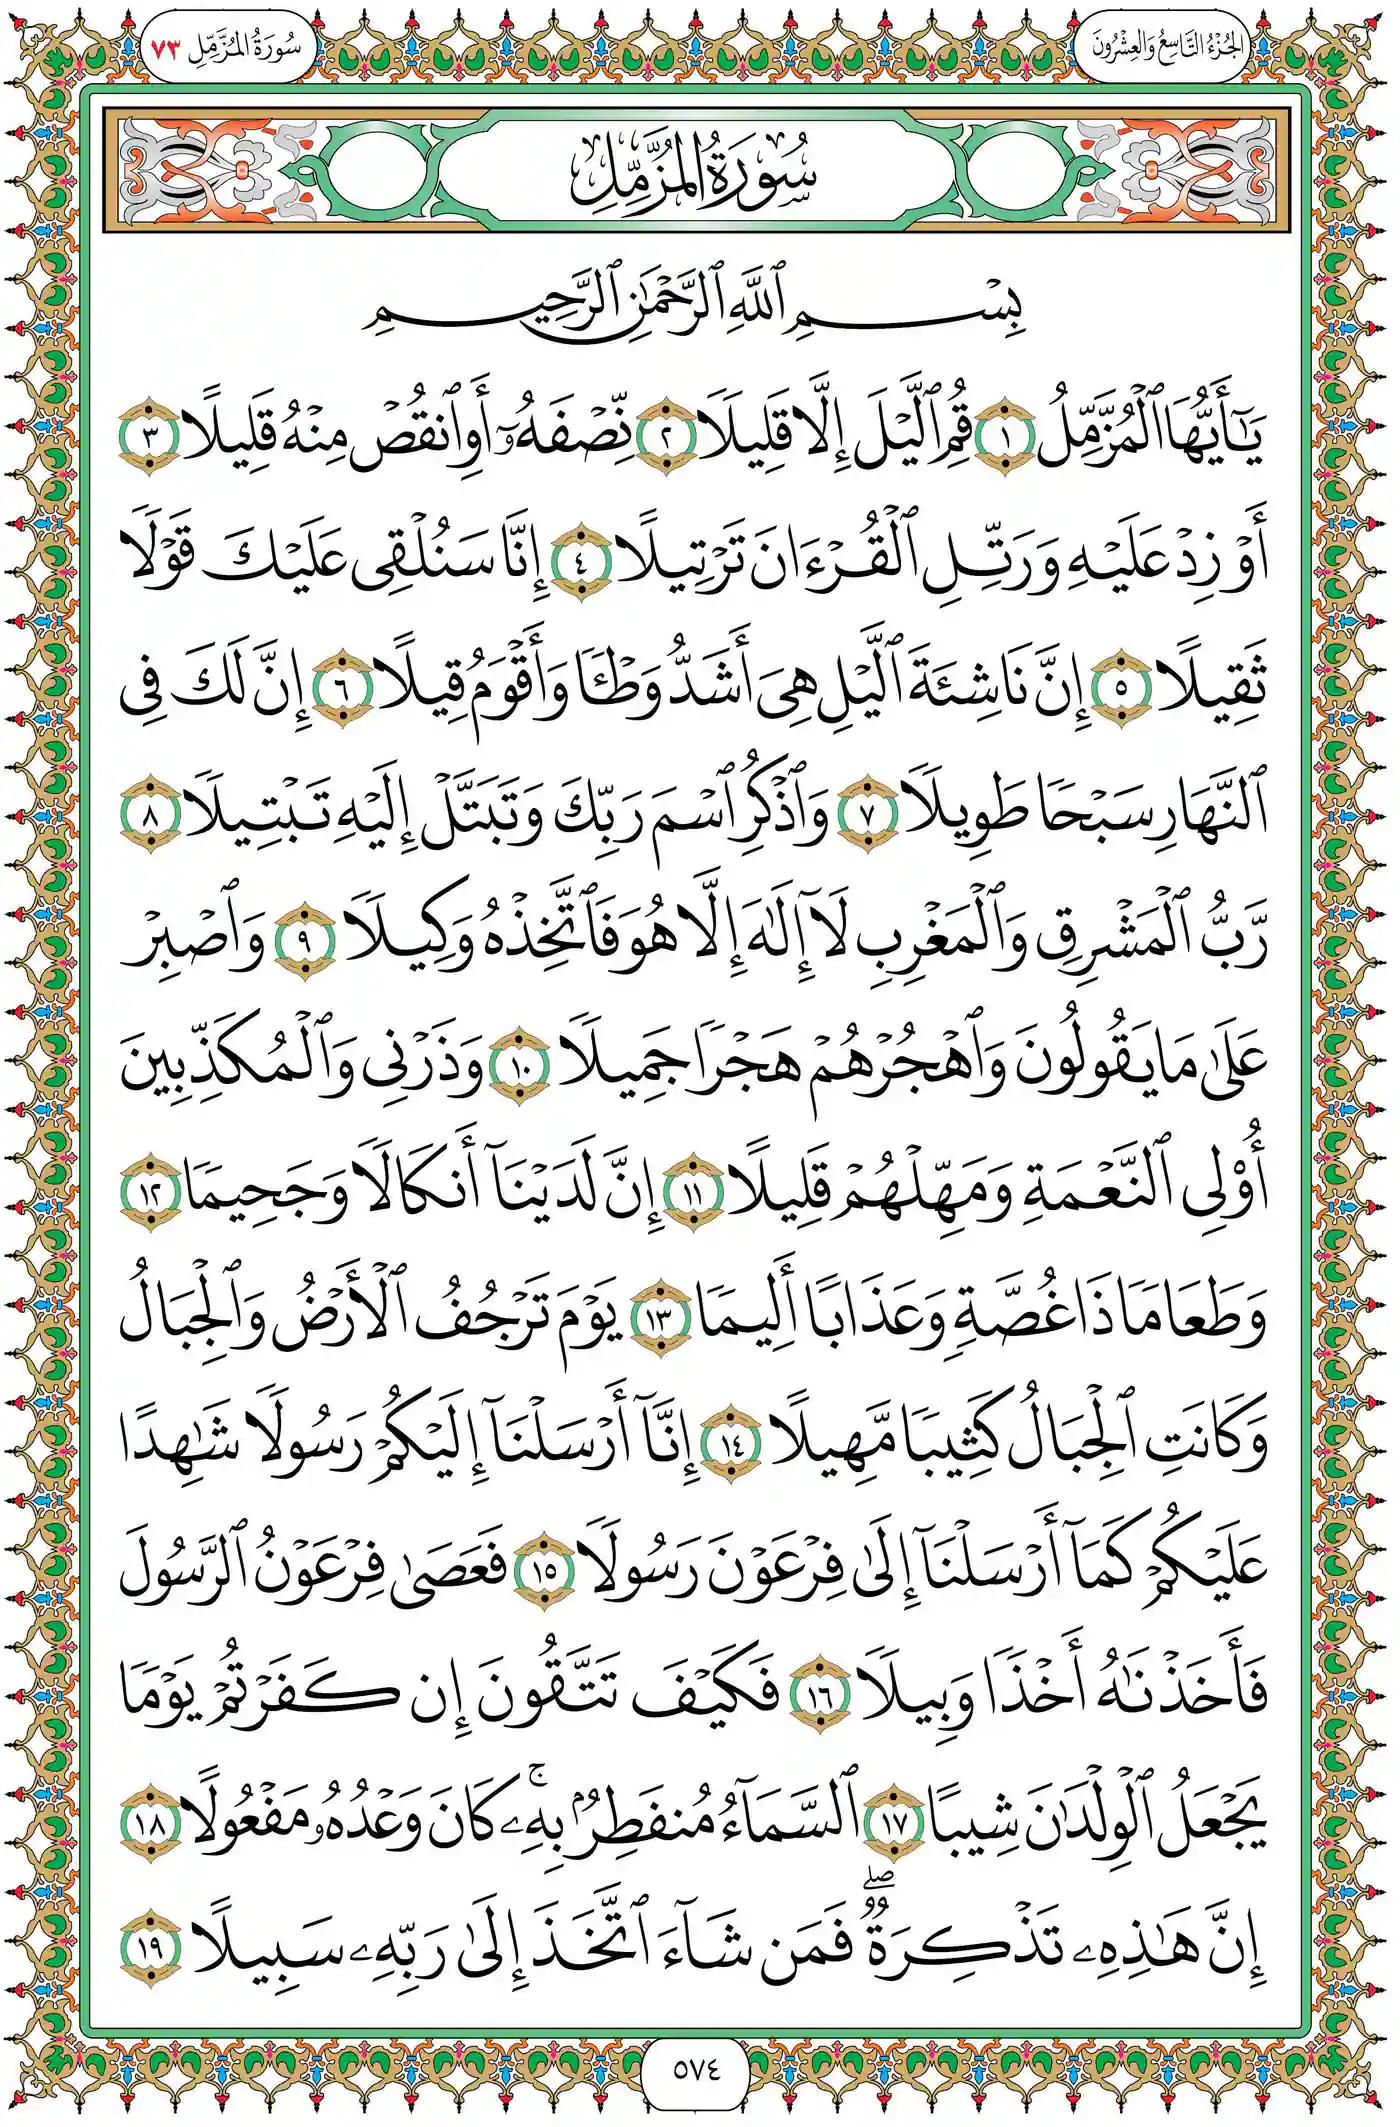 الجُزْءُ التَّاسِعُ وَالعِشْرُونَ
سُورَةُ المُزَّمِّلِ ٧٣
سُورَةُ المُزَّمِّلِ
بِسْمِ ٱللَّهِ ٱلرَّحْمَٰنِ ٱلرَّحِيمِ
يَٰٓأَيُّهَا ٱلْمُزَّمِّلُ ١ قُمِ ٱلَّيْلَ إِلَّا قَلِيلًا ٢ نِّصْفَهُۥٓ أَوِ ٱنقُصْ مِنْهُ قَلِيلًا ٣
أَوْ زِدْ عَلَيْهِ وَرَتِّلِ ٱلْقُرْءَانَ تَرْتِيلًا ٤ إِنَّا سَنُلْقِى عَلَيْكَ قَوْلًا
ثَقِيلًا ٥ إِنَّ نَاشِئَةَ ٱلَّيْلِ هِىَ أَشَدُّ وَطْـًٔا وَأَقْوَمُ قِيلًا ٦ إِنَّ لَكَ فِى
ٱلنَّهَارِ سَبْحًا طَوِيلًا ٧ وَٱذْكُرِ ٱسْمَ رَبِّكَ وَتَبَتَّلْ إِلَيْهِ تَبْتِيلًا ٨
رَّبُّ ٱلْمَشْرِقِ وَٱلْمَغْرِبِ لَآ إِلَٰهَ إِلَّا هُوَ فَٱتَّخِذْهُ وَكِيلًا ٩ وَٱصْبِرْ
عَلَىٰ مَا يَقُولُونَ وَٱهْجُرْهُمْ هَجْرًا جَمِيلًا ١٠ وَذَرْنِى وَٱلْمُكَذِّبِينَ
أُو۟لِى ٱلنَّعْمَةِ وَمَهِّلْهُمْ قَلِيلًا ١١ إِنَّ لَدَيْنَآ أَنكَالًا وَجَحِيمًا ١٢
وَطَعَامًا ذَا غُصَّةٍ وَعَذَابًا أَلِيمًا ١٣ يَوْمَ تَرْجُفُ ٱلْأَرْضُ وَٱلْجِبَالُ
وَكَانَتِ ٱلْجِبَالُ كَثِيبًا مَّهِيلًا ١٤ إِنَّآ أَرْسَلْنَآ إِلَيْكُمْ رَسُولًا شَٰهِدًا
عَلَيْكُمْ كَمَآ أَرْسَلْنَآ إِلَىٰ فِرْعَوْنَ رَسُولًا ١٥ فَعَصَىٰ فِرْعَوْنُ ٱلرَّسُولَ
فَأَخَذْنَٰهُ أَخْذًا وَبِيلًا ١٦ فَكَيْفَ تَتَّقُونَ إِن كَفَرْتُمْ يَوْمًا
يَجْعَلُ ٱلْوِلْدَٰنَ شِيبًا ١٧ ٱلسَّمَآءُ مُنفَطِرٌۢ بِهِۦ ۚ كَانَ وَعْدُهُۥ مَفْعُولًا ١٨
إِنَّ هَٰذِهِۦ تَذْكِرَةٌ ۖ فَمَن شَآءَ ٱتَّخَذَ إِلَىٰ رَبِّهِۦ سَبِيلًا ١٩
٥٧٤